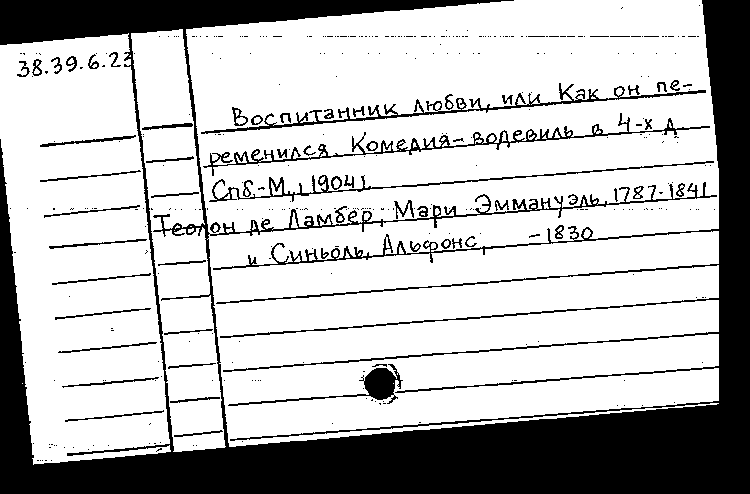 38.39.6.23
Воспитанник любви, или Как он пе-
ременился. Комедия-водевиль в 4-х д
Спб.-М., [1904].
Теолон де Ламбер, Мари Эммануэль, 1787-1841
и Синьоль, Альфонс, -1830